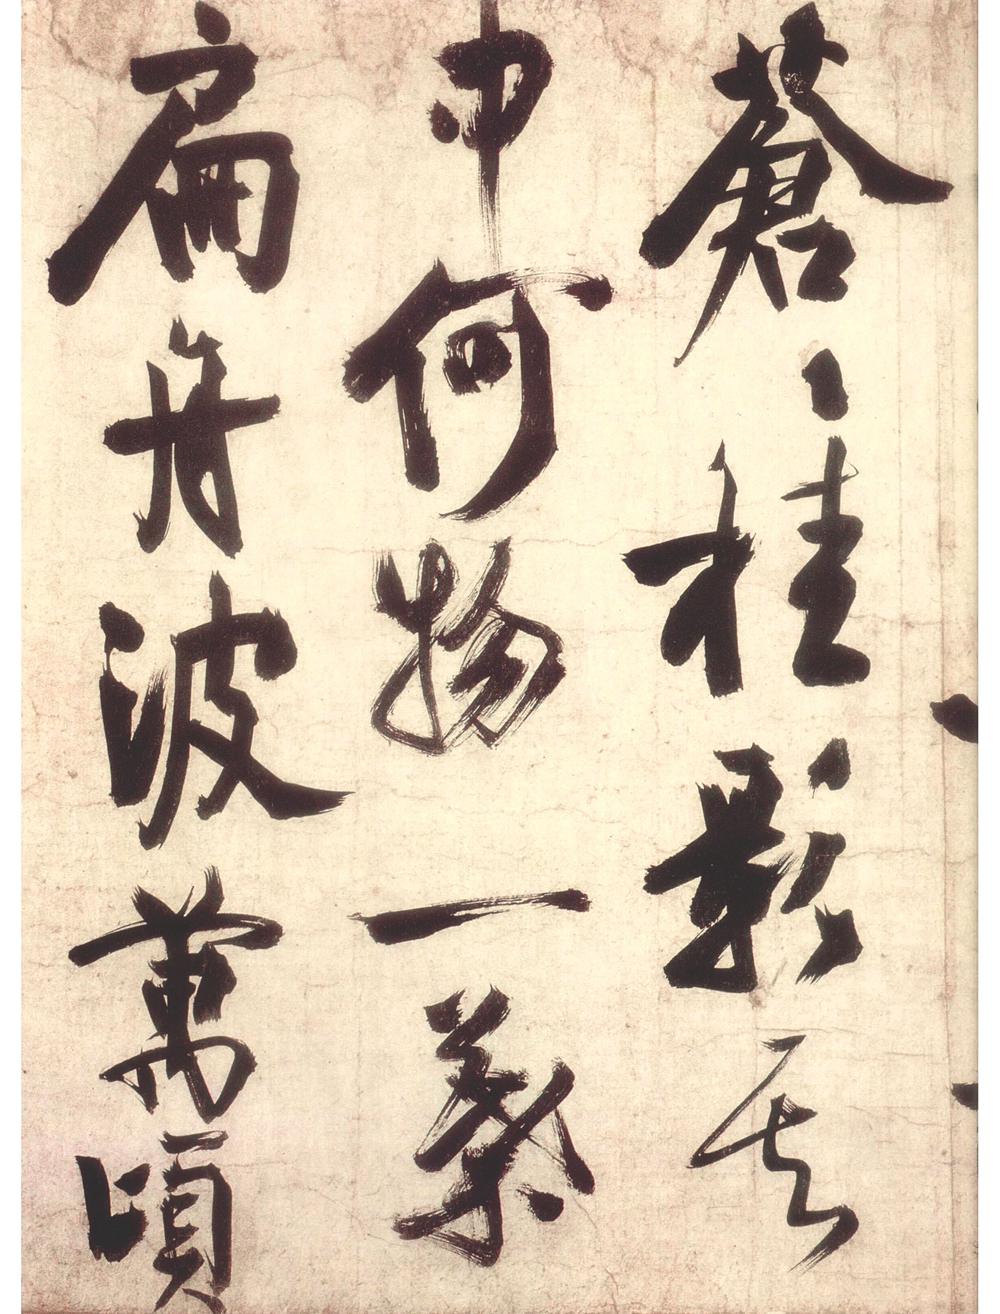 蒼〻桂影其
中何物一葉
扁舟波萬頃